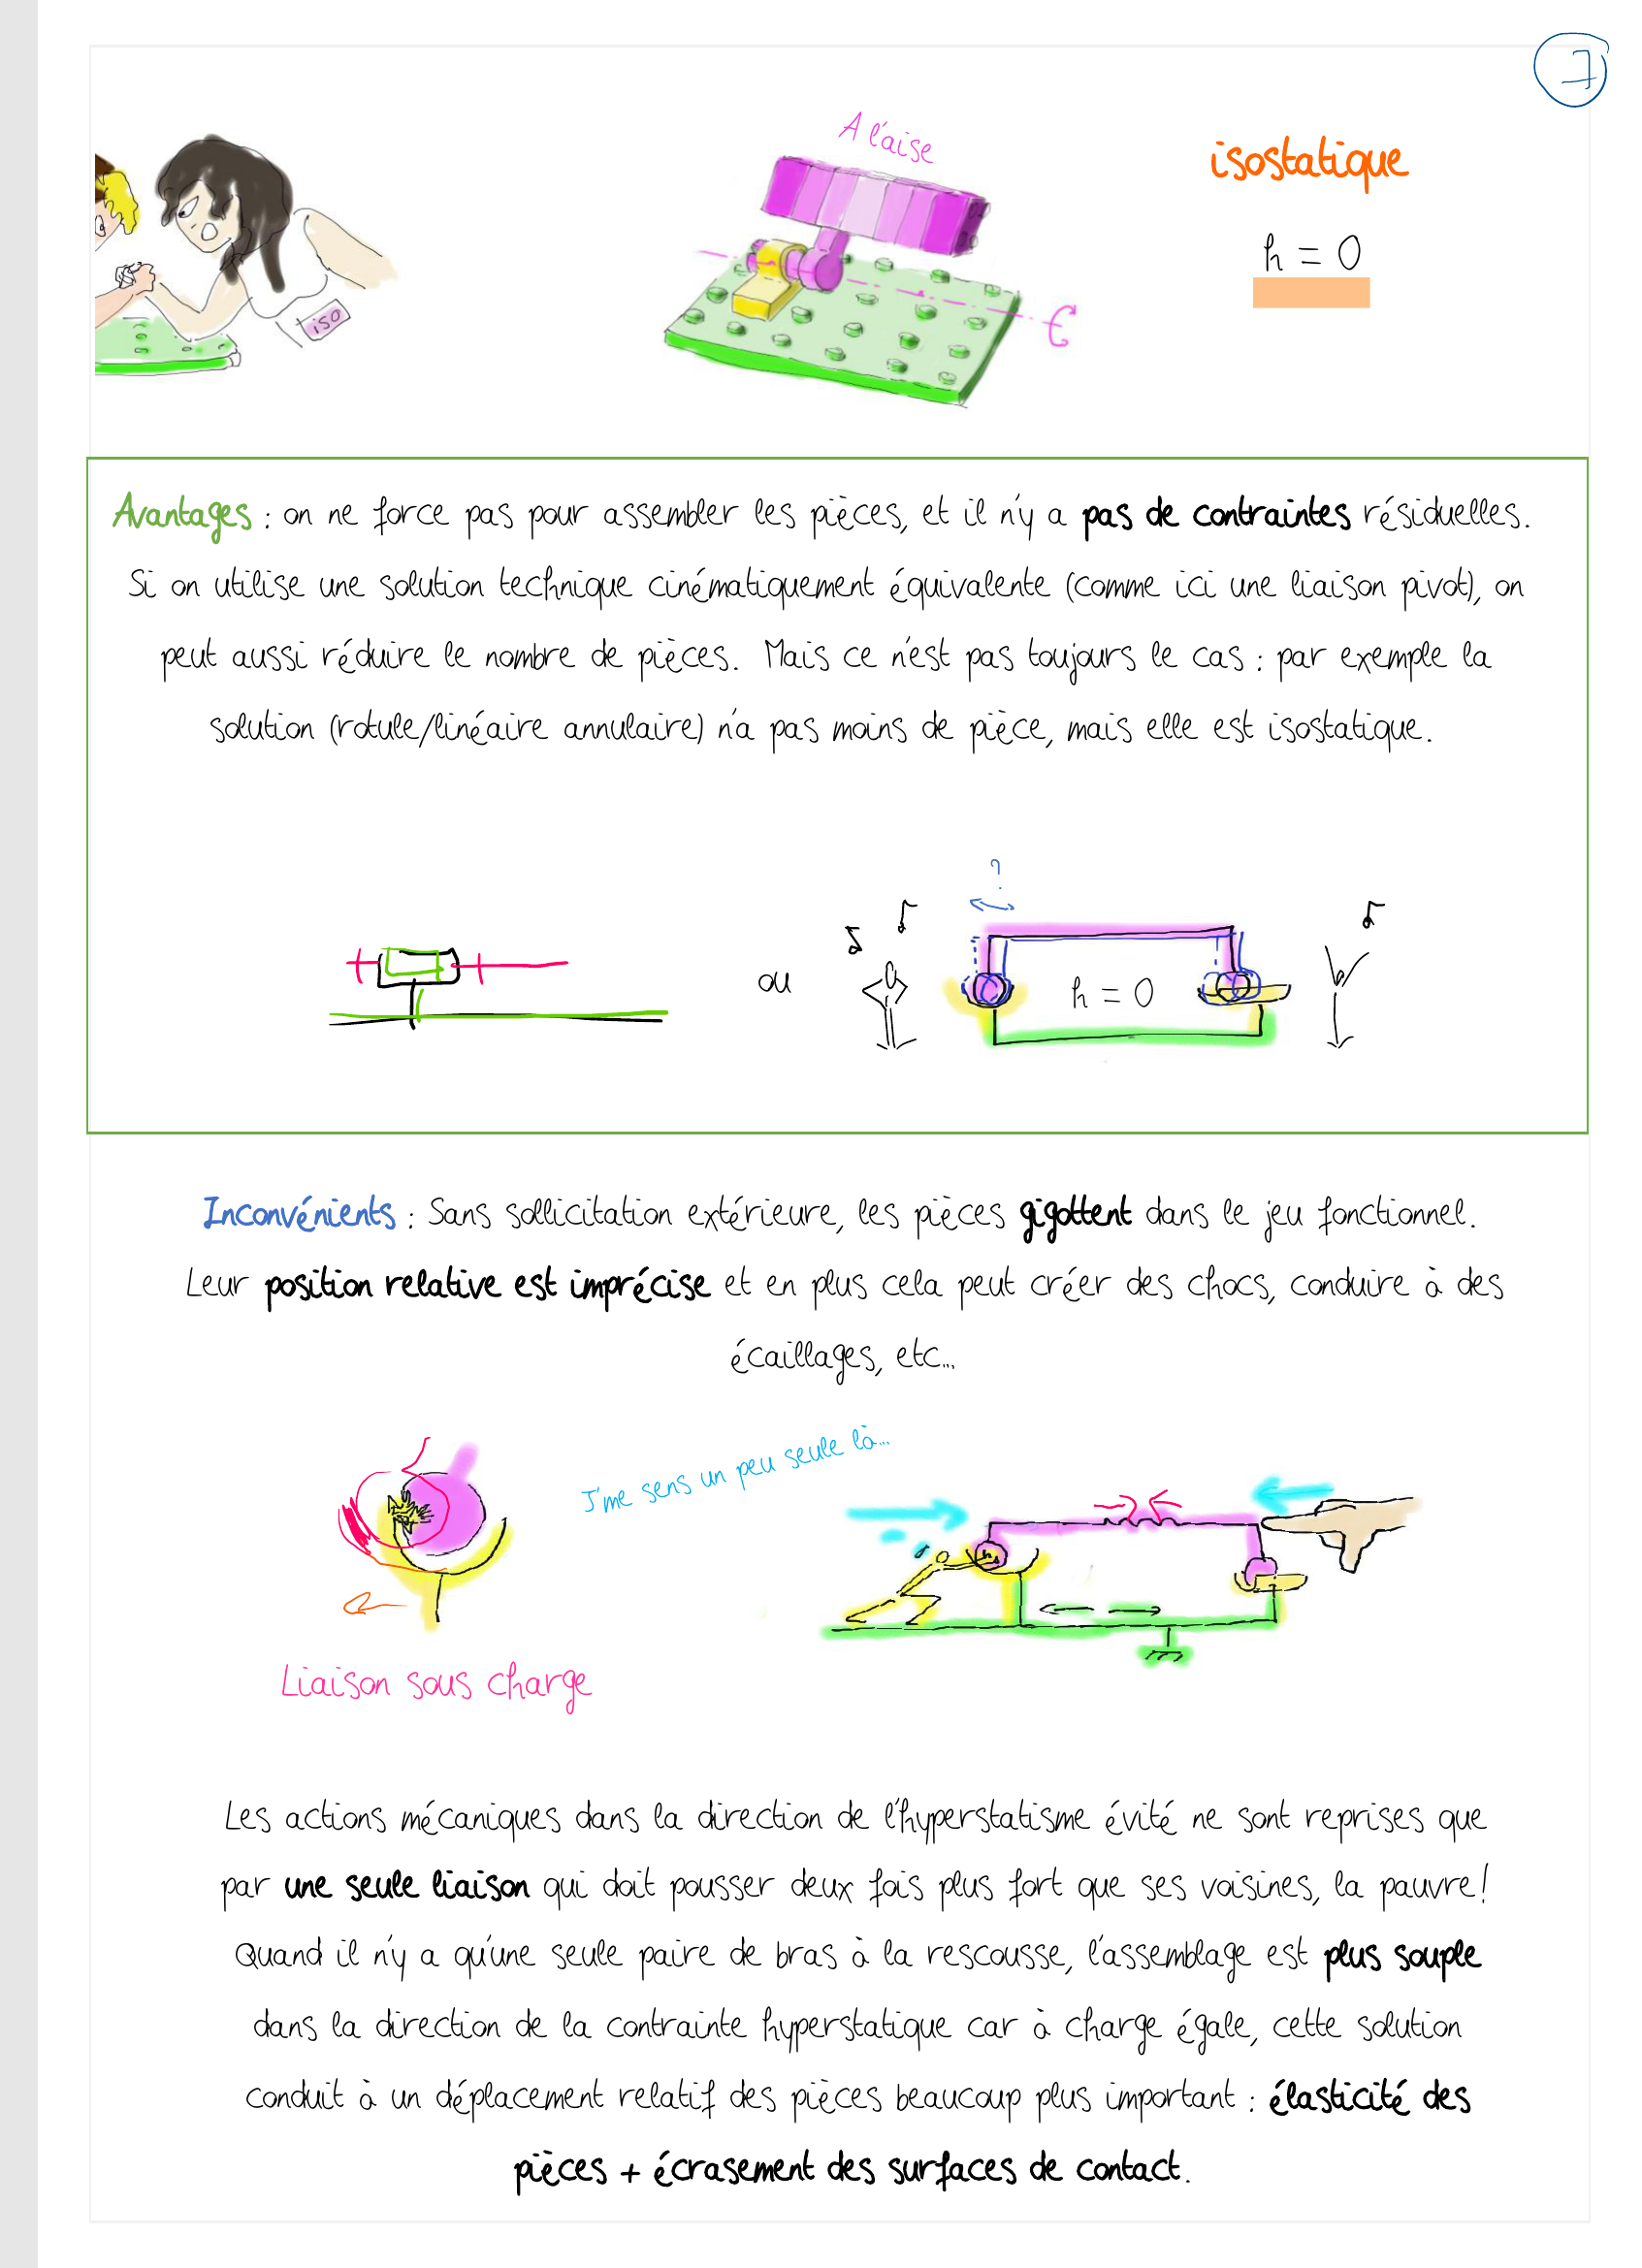 7
A l'aise
isostatique
h = 0
iso
Avantages : on ne force pas pour assembler les pièces, et il n'y a pas de contraintes résiduelles.
Si on utilise une solution technique cinématiquement équivalente (comme ici une liaison pivot), on
peut aussi réduire le nombre de pièces. Mais ce n'est pas toujours le cas : par exemple la
solution (rotule/linéaire annulaire) n'a pas moins de pièce, mais elle est isostatique.
?
ou
h = 0
Inconvénients : Sans sollicitation extérieure, les pièces gigottent dans le jeu fonctionnel.
Leur position relative est imprécise et en plus cela peut créer des chocs, conduire à des
écaillages, etc...
J'me sens un peu seule là...
Liaison sous charge
Les actions mécaniques dans la direction de l'hyperstatisme évité ne sont reprises que
par une seule liaison qui doit pousser deux fois plus fort que ses voisines, la pauvre!
Quand il n'y a qu'une seule paire de bras à la rescousse, l'assemblage est plus souple
dans la direction de la contrainte hyperstatique car à charge égale, cette solution
conduit à un déplacement relatif des pièces beaucoup plus important : élasticité des
pièces + écrasement des surfaces de contact.